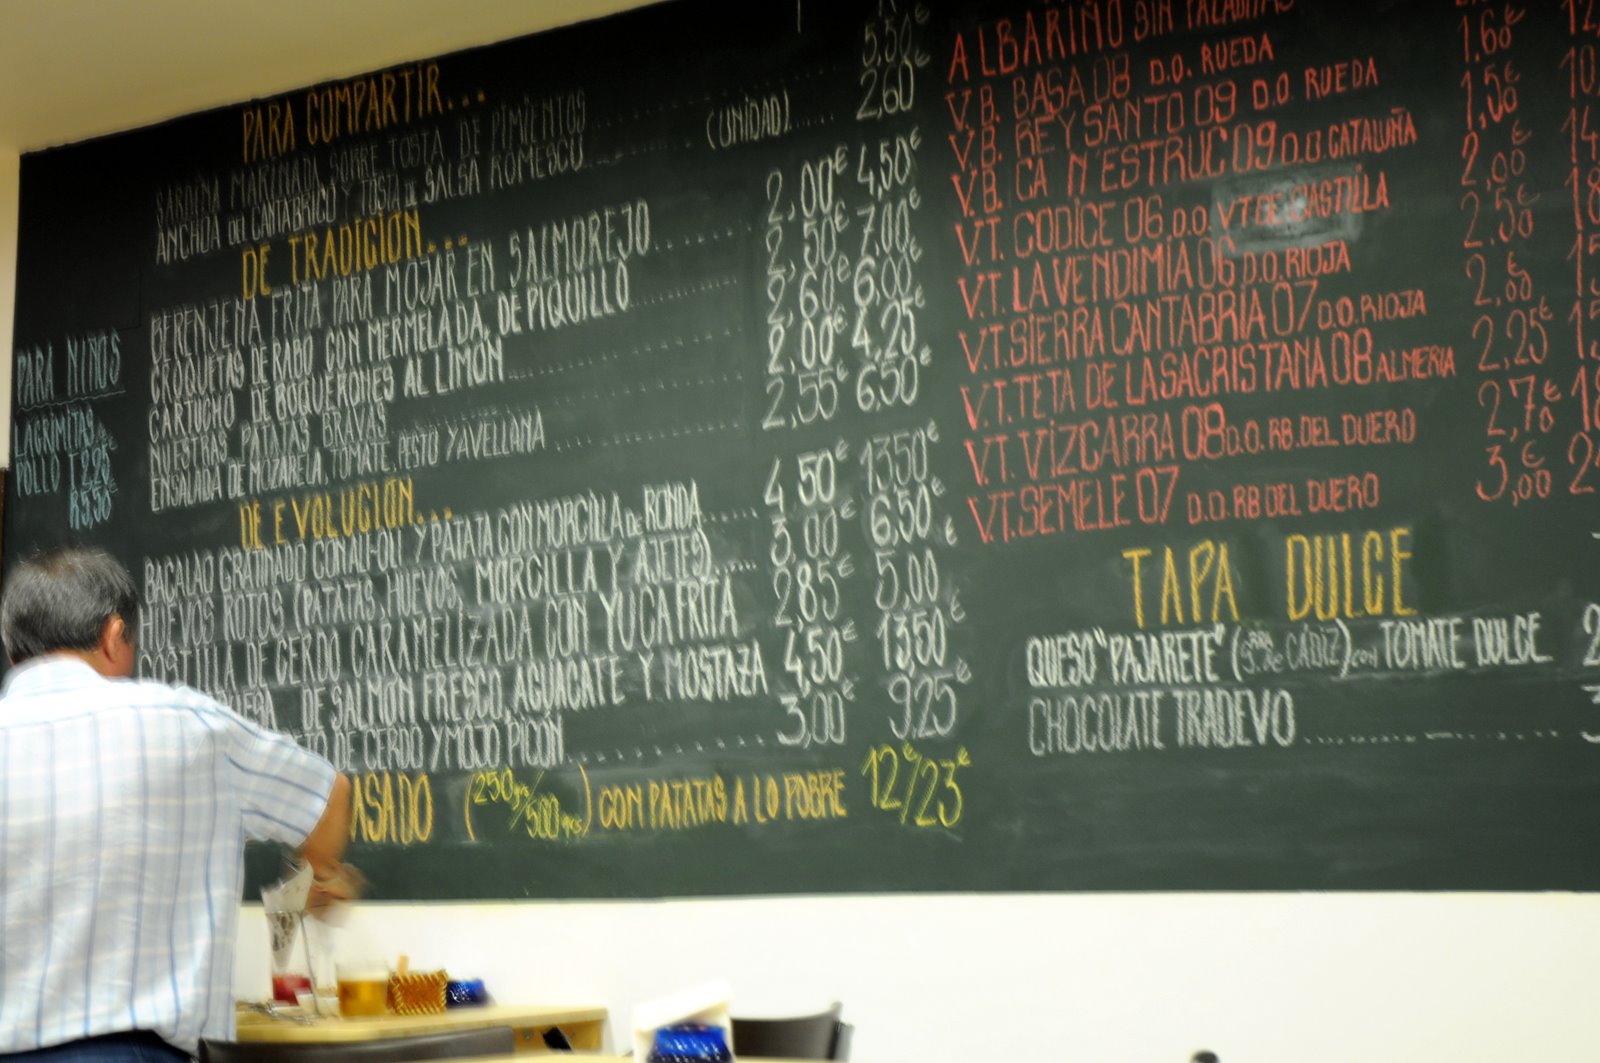 PARA NIÑOS
LAGRIMITAS DE
POLLO T 2,20
R5,50€
PARA COMPARTIR...
SARDINA MARINADA SOBRE TOSTA DE PIMIENTOS 5,50€
ANCHOA DEL CANTÁBRICO Y TOSTA DE SALSA ROMESCO (UNIDAD) 2,60€
DE TRADICIÓN...
BERENJENA FRITA PARA MOJAR EN SALMOREJO 2,00€ 4,50€
CROQUETAS DE RABO CON MERMELADA DE PIQUILLO 2,50€ 7,00€
CARTUCHO DE BOQUERONES AL LIMÓN 2,60€ 6,00€
NUESTRAS PATATAS BRAVAS 2,00€ 4,25€
ENSALADA DE MOZARELA, TOMATE, PESTO Y AVELLANA 2,55€ 6,50€
DE EVOLUCIÓN...
BACALAO GRATINADO CON ALI-OLI Y PATATA CON MORCILLA DE RONDA 4,50€ 13,50€
HUEVOS ROTOS (PATATAS, HUEVOS, MORCILLA Y AJETES) 3,00€ 6,50€
COSTILLA DE CERDO CARAMELIZADA CON YUCA FRITA 2,85€ 5,00€
DE SALMÓN FRESCO, AGUACATE Y MOSTAZA 4,50€ 13,50€
DE CERDO Y MOJO PICÓN 3,00€ 9,25€
ASADO (250grs/500grs) CON PATATAS A LO POBRE 12€/23€
ALBARIÑO SIN PALABRAS
V.B. BASA 08 D.O. RUEDA 1.60€
V.B. REY SANTO 09 D.O. RUEDA 1,50€
V.B. CA N'ESTRUC 09 D.O. CATALUÑA 2,00€
V.T. CODICE 06 D.O. VT DE CASTILLA 2.50€
V.T. LA VENDIMIA 06 D.O. RIOJA 2,60€
V.T. SIERRA CANTABRIA 07 D.O. RIOJA 2,25€
V.T. TETA DE LA SACRISTANA 08 ALMERIA 2,70€
V.T. VIZCARRA 08 D.O. RB. DEL DUERO 3,00€
V.T. SEMELE 07 D.O. RB DEL DUERO
TAPA DULCE
QUESO "PAJARETE" (DE CÁDIZ) CON TOMATE DULCE
CHOCOLATE TRADEVO